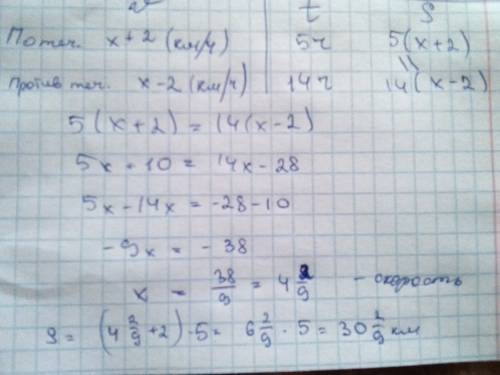 v t S
По теч. x+2 (км/ч) 5ч 5(x+2)
Против теч. x-2 (км/ч) 14ч 14(x-2)
5(x+2) = 14(x-2)
5x + 10 = 14x - 28
5x - 14x = -28 - 10
-9x = -38
x = 38/9 = 4 2/9 - скорость
S = (4 2/9 + 2) · 5 = 6 2/9 · 5 = 30 2/9 км